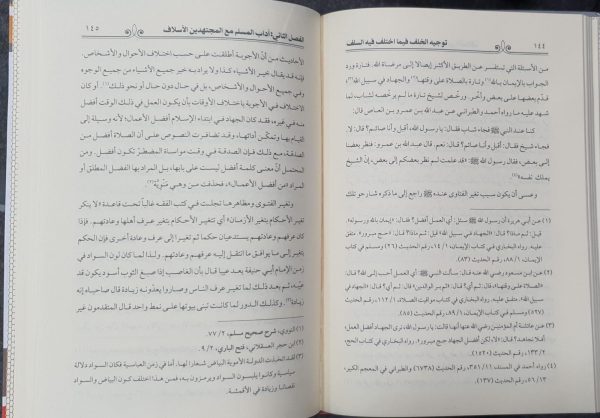 ١٤٤ توجيه الخلف فيما اختلف فيه السلف
من الأسئلة التي تستفسر عن الطريق الأكثر إيصالا إلى مرضاة الله. فتارة ورد
الجواب بالإيمان بالله(١) وتارة بالصلاة على وقتها(٢) والجهاد في سبيل الله(٣)
قدّم بعضها على بعض وأخّر. ورخّص لشيخ تارة ما لم يرخصه لشاب، لما
شهد عليه ما رواه أحمد والطبراني عن عبد الله بن عمرو بن العاص قال:
كنا عند النبي ﷺ فجاء شاب فقال: يا رسول الله، أقبل وأنا صائم؟ قال: لا.
فجاء شيخ فقال: أقبل وأنا صائم؟ قال: نعم. قال عبد الله بن عمرو: فنظر بعضنا
إلى بعض، فقال رسول الله ﷺ: «قد علمت لم نظر بعضكم إلى بعض، إنّ الشيخ
يملك نفسه»(٤)
وعسى أن يكون سبب تغير الفتاوى عنده ﷺ راجع إلى ما ذكره شارحو تلك
(١) عن أبي هريرة أن رسول الله ﷺ سئل: أي العمل أفضل؟ فقال: «إيمان بالله ورسوله».
قيل: ثم ماذا؟ قال: «الجهاد في سبيل الله» قيل: ثم ماذا؟ قال: «حج مبرور» متفق
عليه. رواه البخاري في كتاب الإيمان، ١/ ١٤، رقم الحديث (٢٦) ومسلم في كتاب
الإيمان، ١/ ٨٨، رقم الحديث (٨٣)
(٢) عن ابن مسعود رضي الله عنه قال: سألت النبي ﷺ: أي العمل أحب إلى الله؟ قال:
«الصلاة على وقتها»، قال: ثم أي؟ قال: «ثم بر الوالدين» قال: ثم أي؟ قال: «الجهاد في
سبيل الله». متفق عليه. رواه البخاري في كتاب مواقيت الصلاة، ١/ ١١٢، رقم الحديث
(٥٢٧) ومسلم في كتاب الإيمان، ١/ ٨٩، رقم الحديث (٨٥)
(٣) عن عائشة أم المؤمنين رضي الله عنها أنها قالت: يا رسول الله، نرى الجهاد أفضل العمل،
أفلا نجاهد؟ قال: «لا، لكن أفضل الجهاد حج مبرور». متفق عليه. رواه البخاري في كتاب الحج،
٢/ ١٣٣، رقم الحديث (١٥٢٠)
(٤) رواه أحمد في المسند، ١١/ ٣٥١، رقم الحديث (٦٧٣٨) والطبراني في المعجم الكبير،
١٣/ ٥٦، رقم الحديث (١٣٧)
الفصل الثاني: آداب المسلم مع المجتهدين الأسلاف ١٤٥
الأحاديث من أنّ الأجوبة أطلقت على حسب اختلاف الأحوال والأشخاص.
فإنه قد يقال: خير الأشياء كذا ولا يراد به خير جميع الأشياء من جميع الوجوه
وفي جميع الأحوال والأشخاص، بل في حال دون حال أو نحو ذلك(١). أو كان
الاختلاف في الأجوبة باختلاف الأوقات بأن يكون العمل في ذلك الوقت أفضل
منه في غيره، فقد كان الجهاد في ابتداء الإسلام أفضل الأعمال؛ لأنه وسيلة إلى
القيام بها وتمكّن أدائها، وقد تضافرت النصوص على أن الصلاة أفضل من
الصدقة، مع ذلك فإنّ الصدقة في وقت مواساة المضطرّ تكون أفضل. ومن
المحتمل أنّ معنى كلمة أفضل ليست على بابها، بل المراد بها الفضل المطلق أو
المراد «من أفضل الأعمال»، فحذفت من وهي منْويّة(٢)
وتغير الفتوى ومظاهرها تجلّت في كتب الفقه غالباً تحت قاعدة «لا ينكر
تغير الأحكام بتغير الأزمان» أي تتغير الأحكام بتغير عرف أهلها وعادتهم. فإذا
كان عرفهم وعادتهم يستدعيان حكما ثم تغيرا إلى عرف وعادة أخرى فإن الحكم
يتغير إلى ما يوافق ما انتقل إليه عرفهم وعادتهم. ولذا لما كان لون السواد في
زمن الإمام أبي حنيفة يعد عيبا قال بأن الغاصب إذا صبغ الثوب أسود يكون قد
عيّبه، ثم بعد ذلك لما تغير عرف الناس وصاروا يعدّونه زيادة قال صاحباه إنه
زيادة(٣). وكذلك الدور لما كانت تبنى بيوتها على نمط واحد قال المتقدمون غير
(١) النووي، شرح صحيح مسلم، ٢/ ٧٧.
(٢) ابن حجر العسقلاني، فتح الباري، ٢/ ٩.
(٣) لقد اتخذت الدولة الأموية البياض شعارا لها. أما في زمن العباسية فكان السواد دلالة
سياسية وكانوا يلبسون السواد ويرمزون به، فمن هذا اختلف كون البياض والسواد
نقصانا وزيادة في الأقمشة.